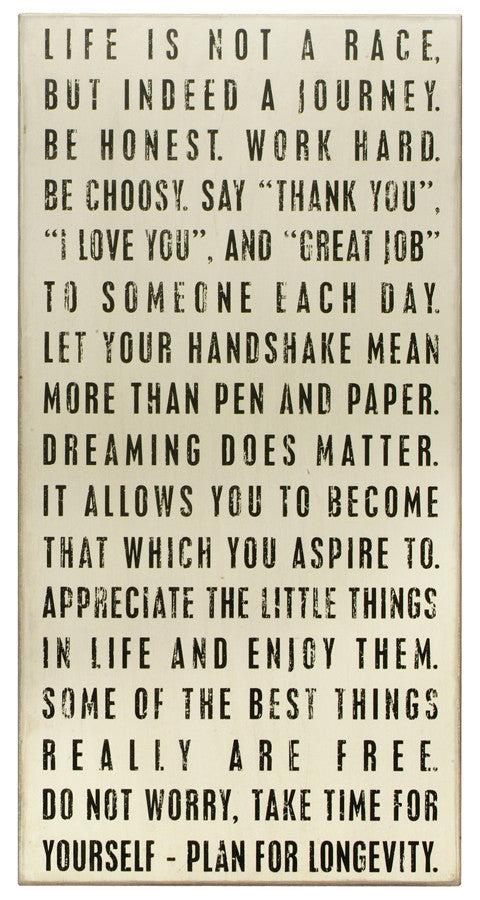 LIFE IS NOT A RACE,
BUT INDEED A JOURNEY.
BE HONEST. WORK HARD.
BE CHOOSY. SAY “THANK YOU”,
“I LOVE YOU”, AND “GREAT JOB”
TO SOMEONE EACH DAY.
LET YOUR HANDSHAKE MEAN
MORE THAN PEN AND PAPER.
DREAMING DOES MATTER.
IT ALLOWS YOU TO BECOME
THAT WHICH YOU ASPIRE TO.
APPRECIATE THE LITTLE THINGS
IN LIFE AND ENJOY THEM.
SOME OF THE BEST THINGS
REALLY ARE FREE.
DO NOT WORRY, TAKE TIME FOR
YOURSELF - PLAN FOR LONGEVITY.